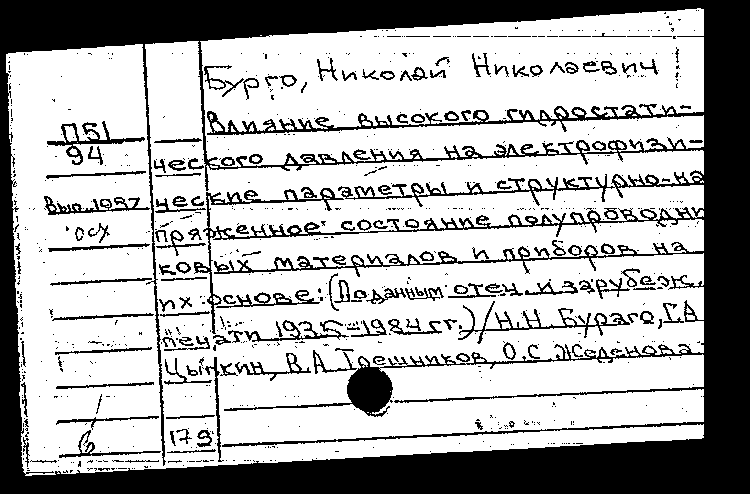 Бурго, Николай Николаевич
П51
94
Вып. 1987
осх
Влияние высокого гидростати-
ческого давления на электрофизи-
ческие параметры и структурно-на
пряженное состояние полупроводни
ковых материалов и приборов на
их основе: (По данным отеч. и зарубеж.
печати 1935-1984 гг.) / Н.Н. Бураго, Г.А
Цыпкин, В.А Трешников, О.С Жеденова
179